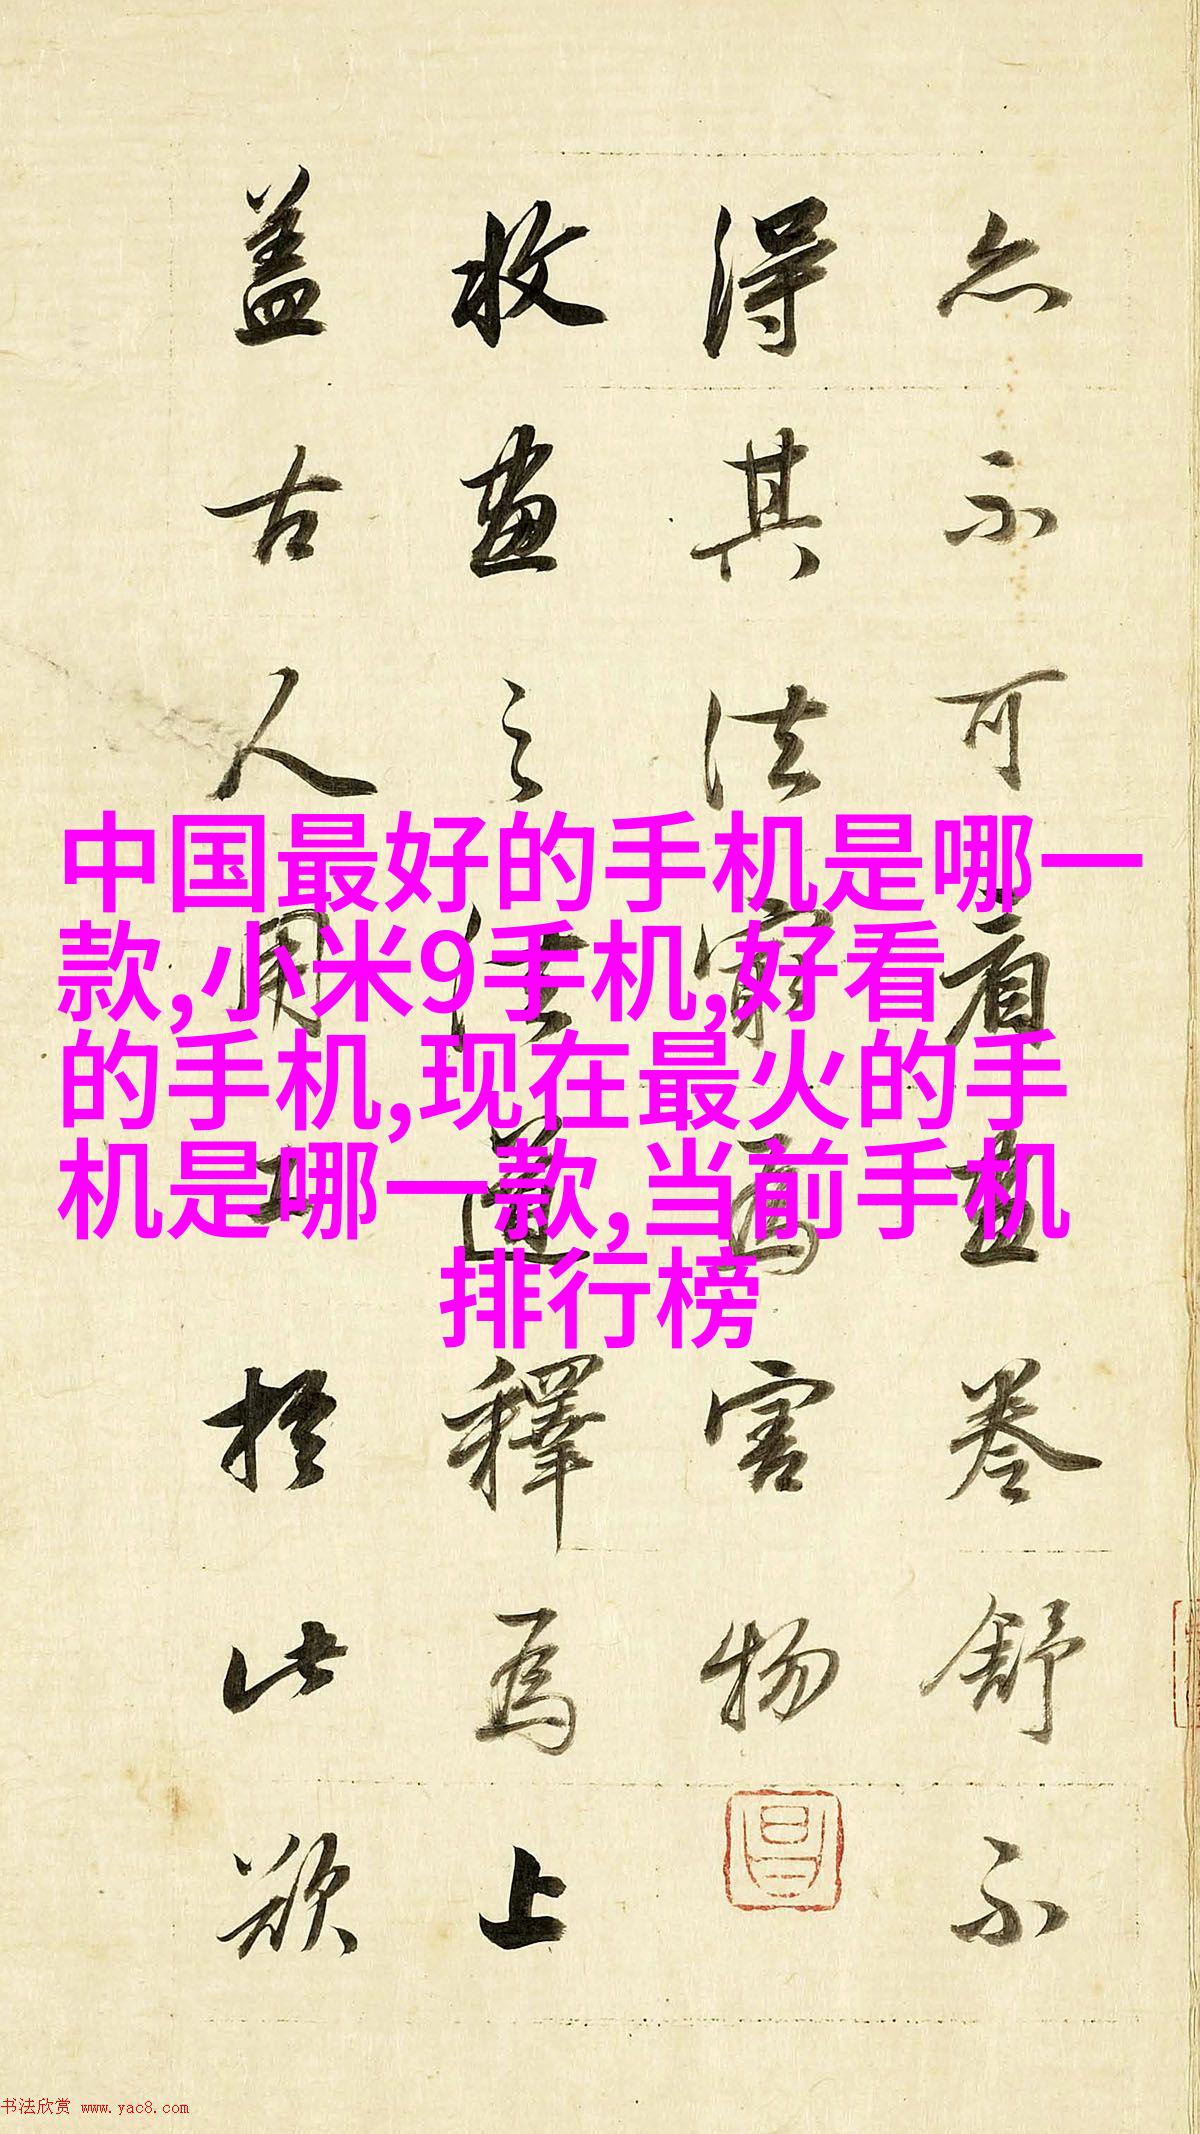 亦不可看畫卷舒不
得其法㝡爲害物
收畫之法道釋爲上
蓋古人用工於此欲
中国最好的手机是哪一
款,小米9手机,好看
的手机,现在最火的手
机是哪一款,当前手机
排行榜
书法欣赏 www.yac8.com